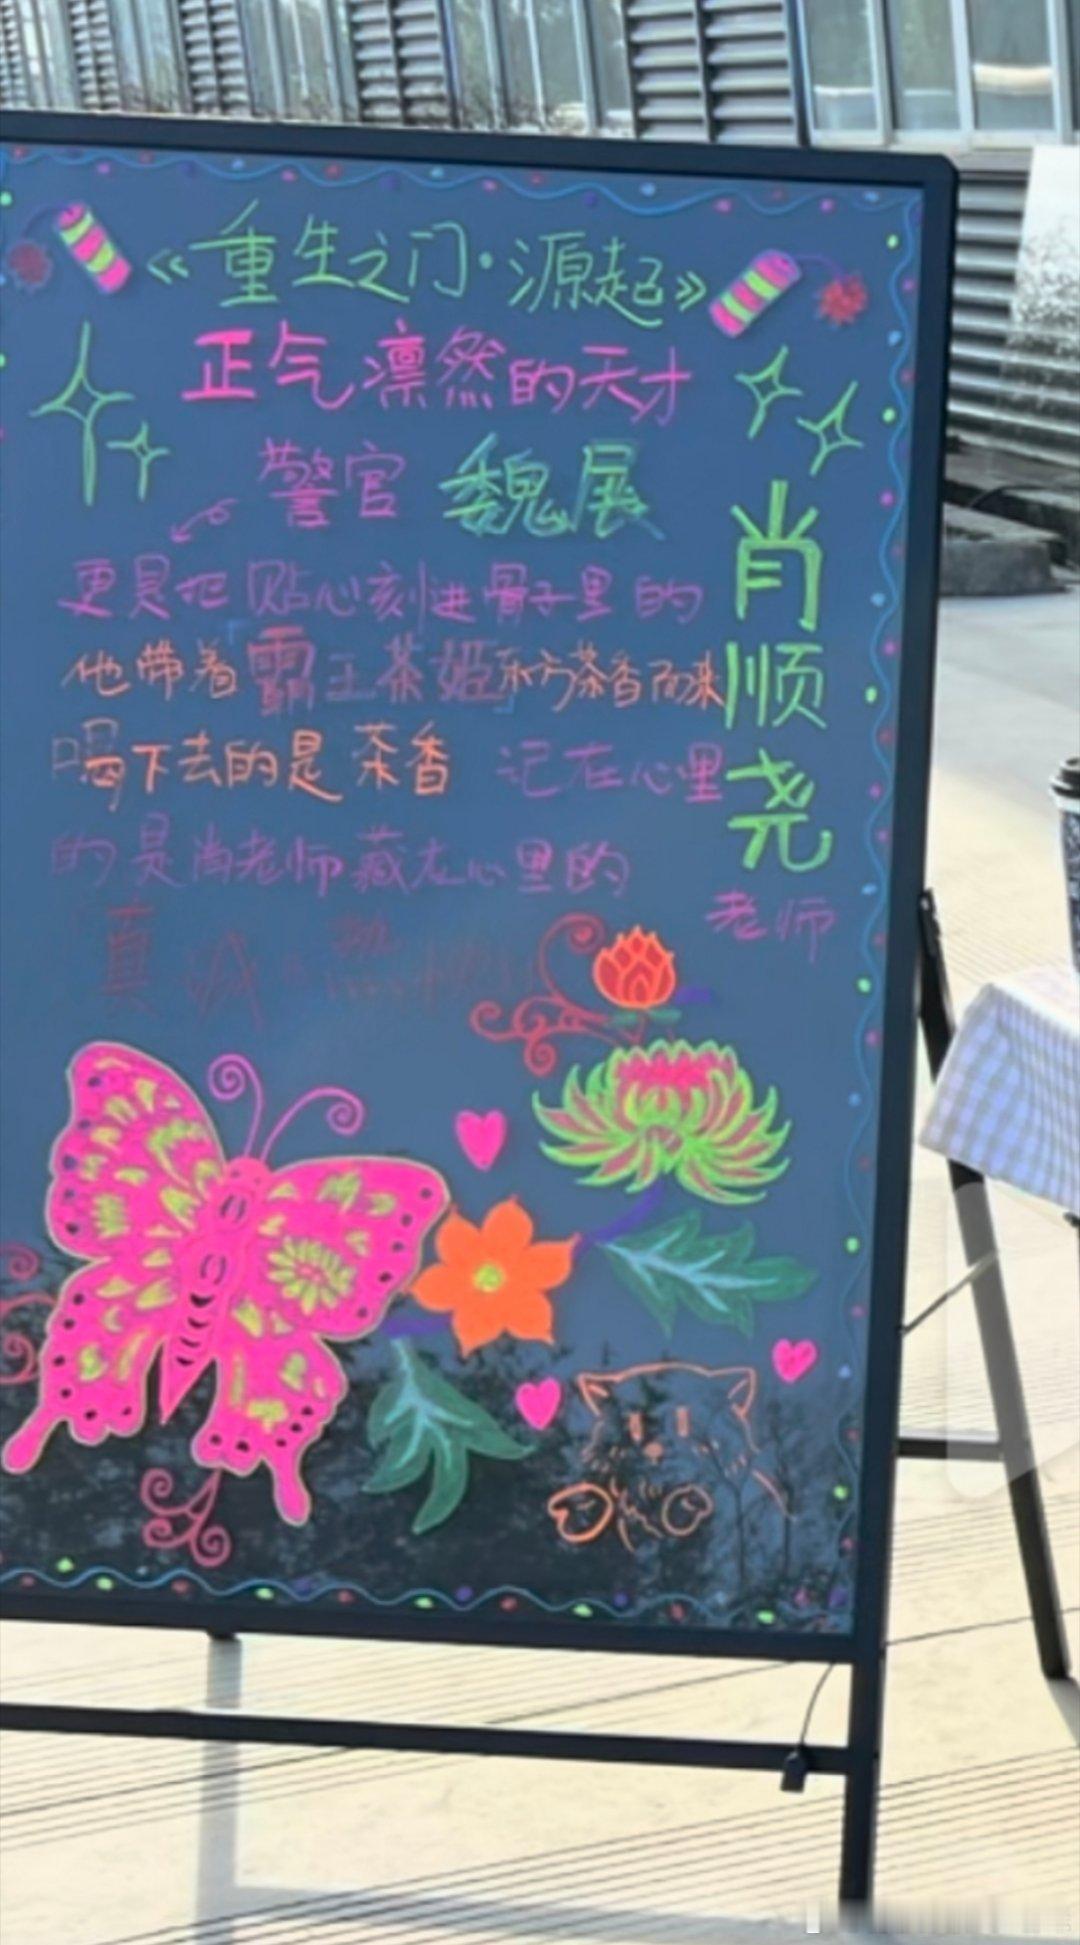 《重生之门·源起》
正气凛然的天才
警官 魏展
更是把贴心刻进骨子里的
他带着「霸王茶姬」东方茶香而来
喝下去的是茶香 记在心里
的是肖老师藏在心里的
「真诚
肖顺尧
老师